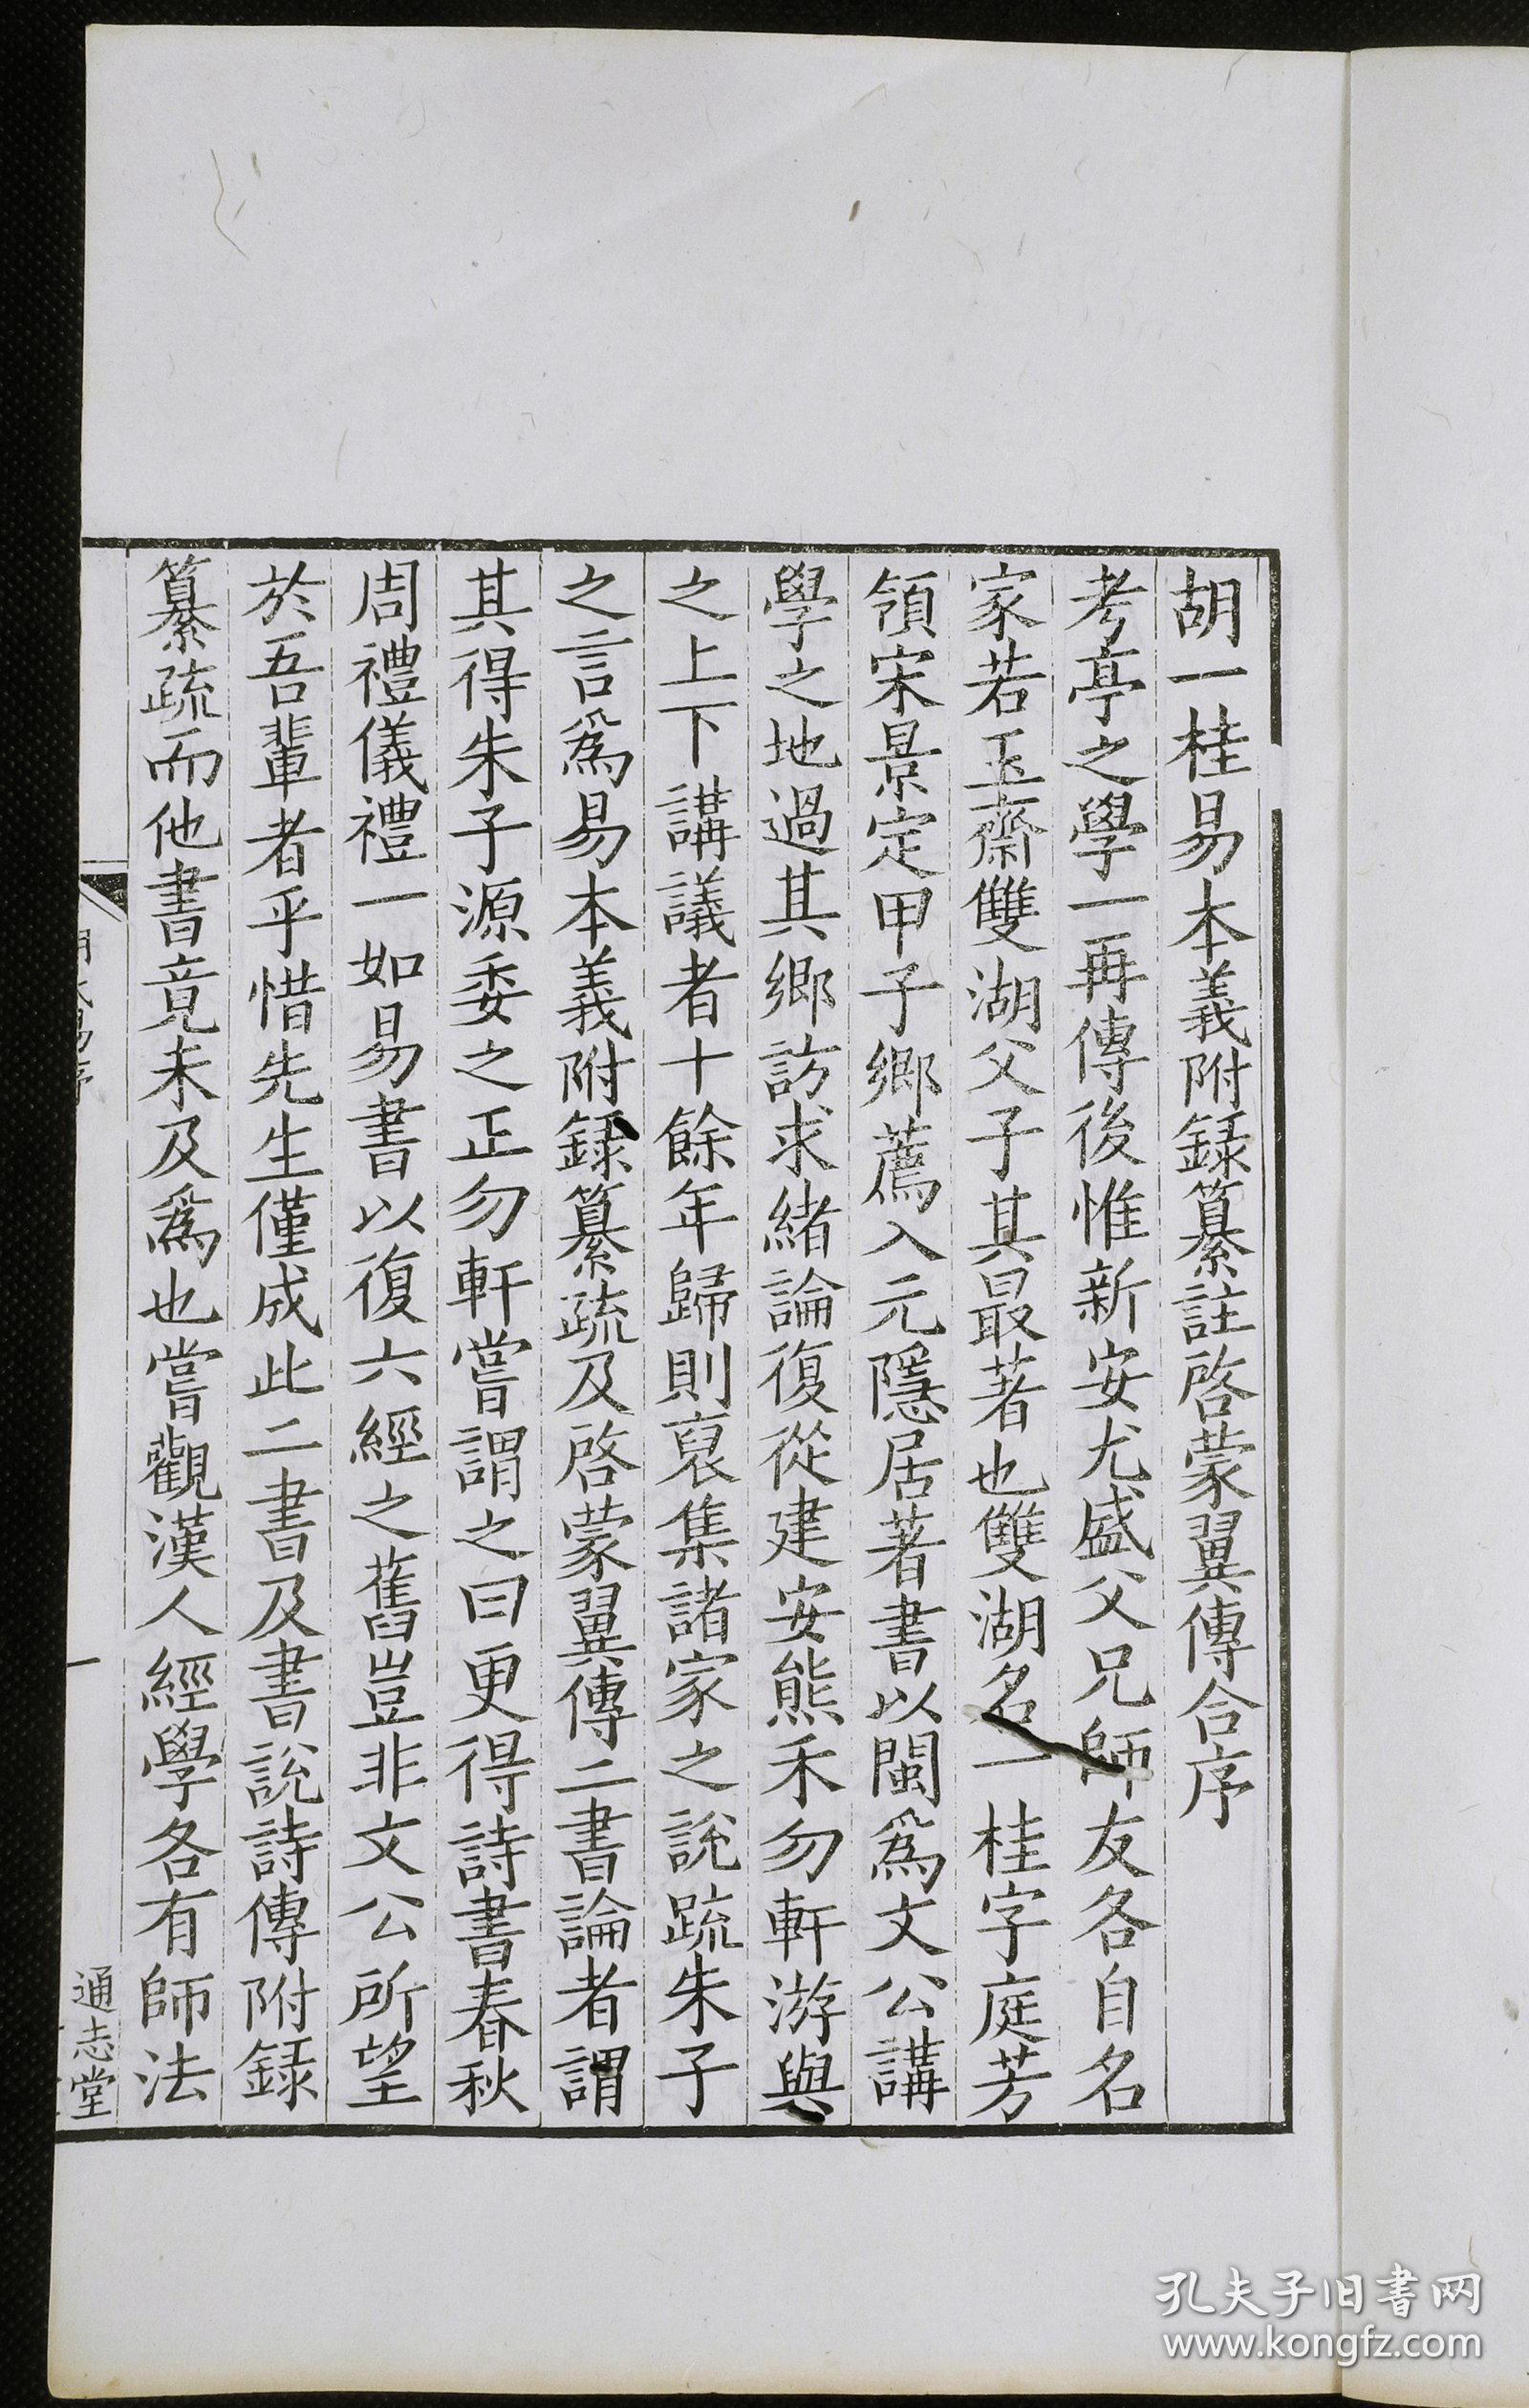 胡一桂易本義附録纂註啓蒙翼傳合序
考亭之學一再傳後惟新安尤盛父兄師友各自名
家若玉齋雙湖父子其最著也雙湖名一桂字庭芳
領宋景定甲子鄉薦入元隱居著書以閩爲文公講
學之地過其鄉訪求緒論復從建安熊禾勿軒游與
之上下講議者十餘年歸則裒集諸家之說疏朱子
之言爲易本義附録纂疏及啓蒙翼傳二書論者謂
其得朱子源委之正勿軒嘗謂之曰更得詩書春秋
周禮儀禮一如易書以復六經之舊豈非文公所望
於吾輩者乎惜先生僅成此二書及書說詩傳附録
纂疏而他書竟未及爲也嘗觀漢人經學各有師法
一
通志堂
孔夫子旧书网
www.kongfz.com